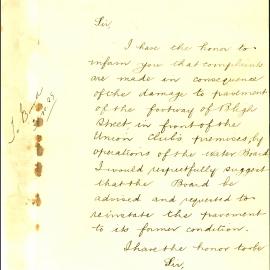 Sir,
I have the honor to
inform you that complaints
are made in consequence
of the damage to pavement
of the footway of Bligh
Street, in front of the
Union Club's premises, by
operations of the Water Board.
I would respectfully suggest
that the Board be
advised and requested to
reinstate the pavement
to its former condition.
I have the honor to be
Sir,